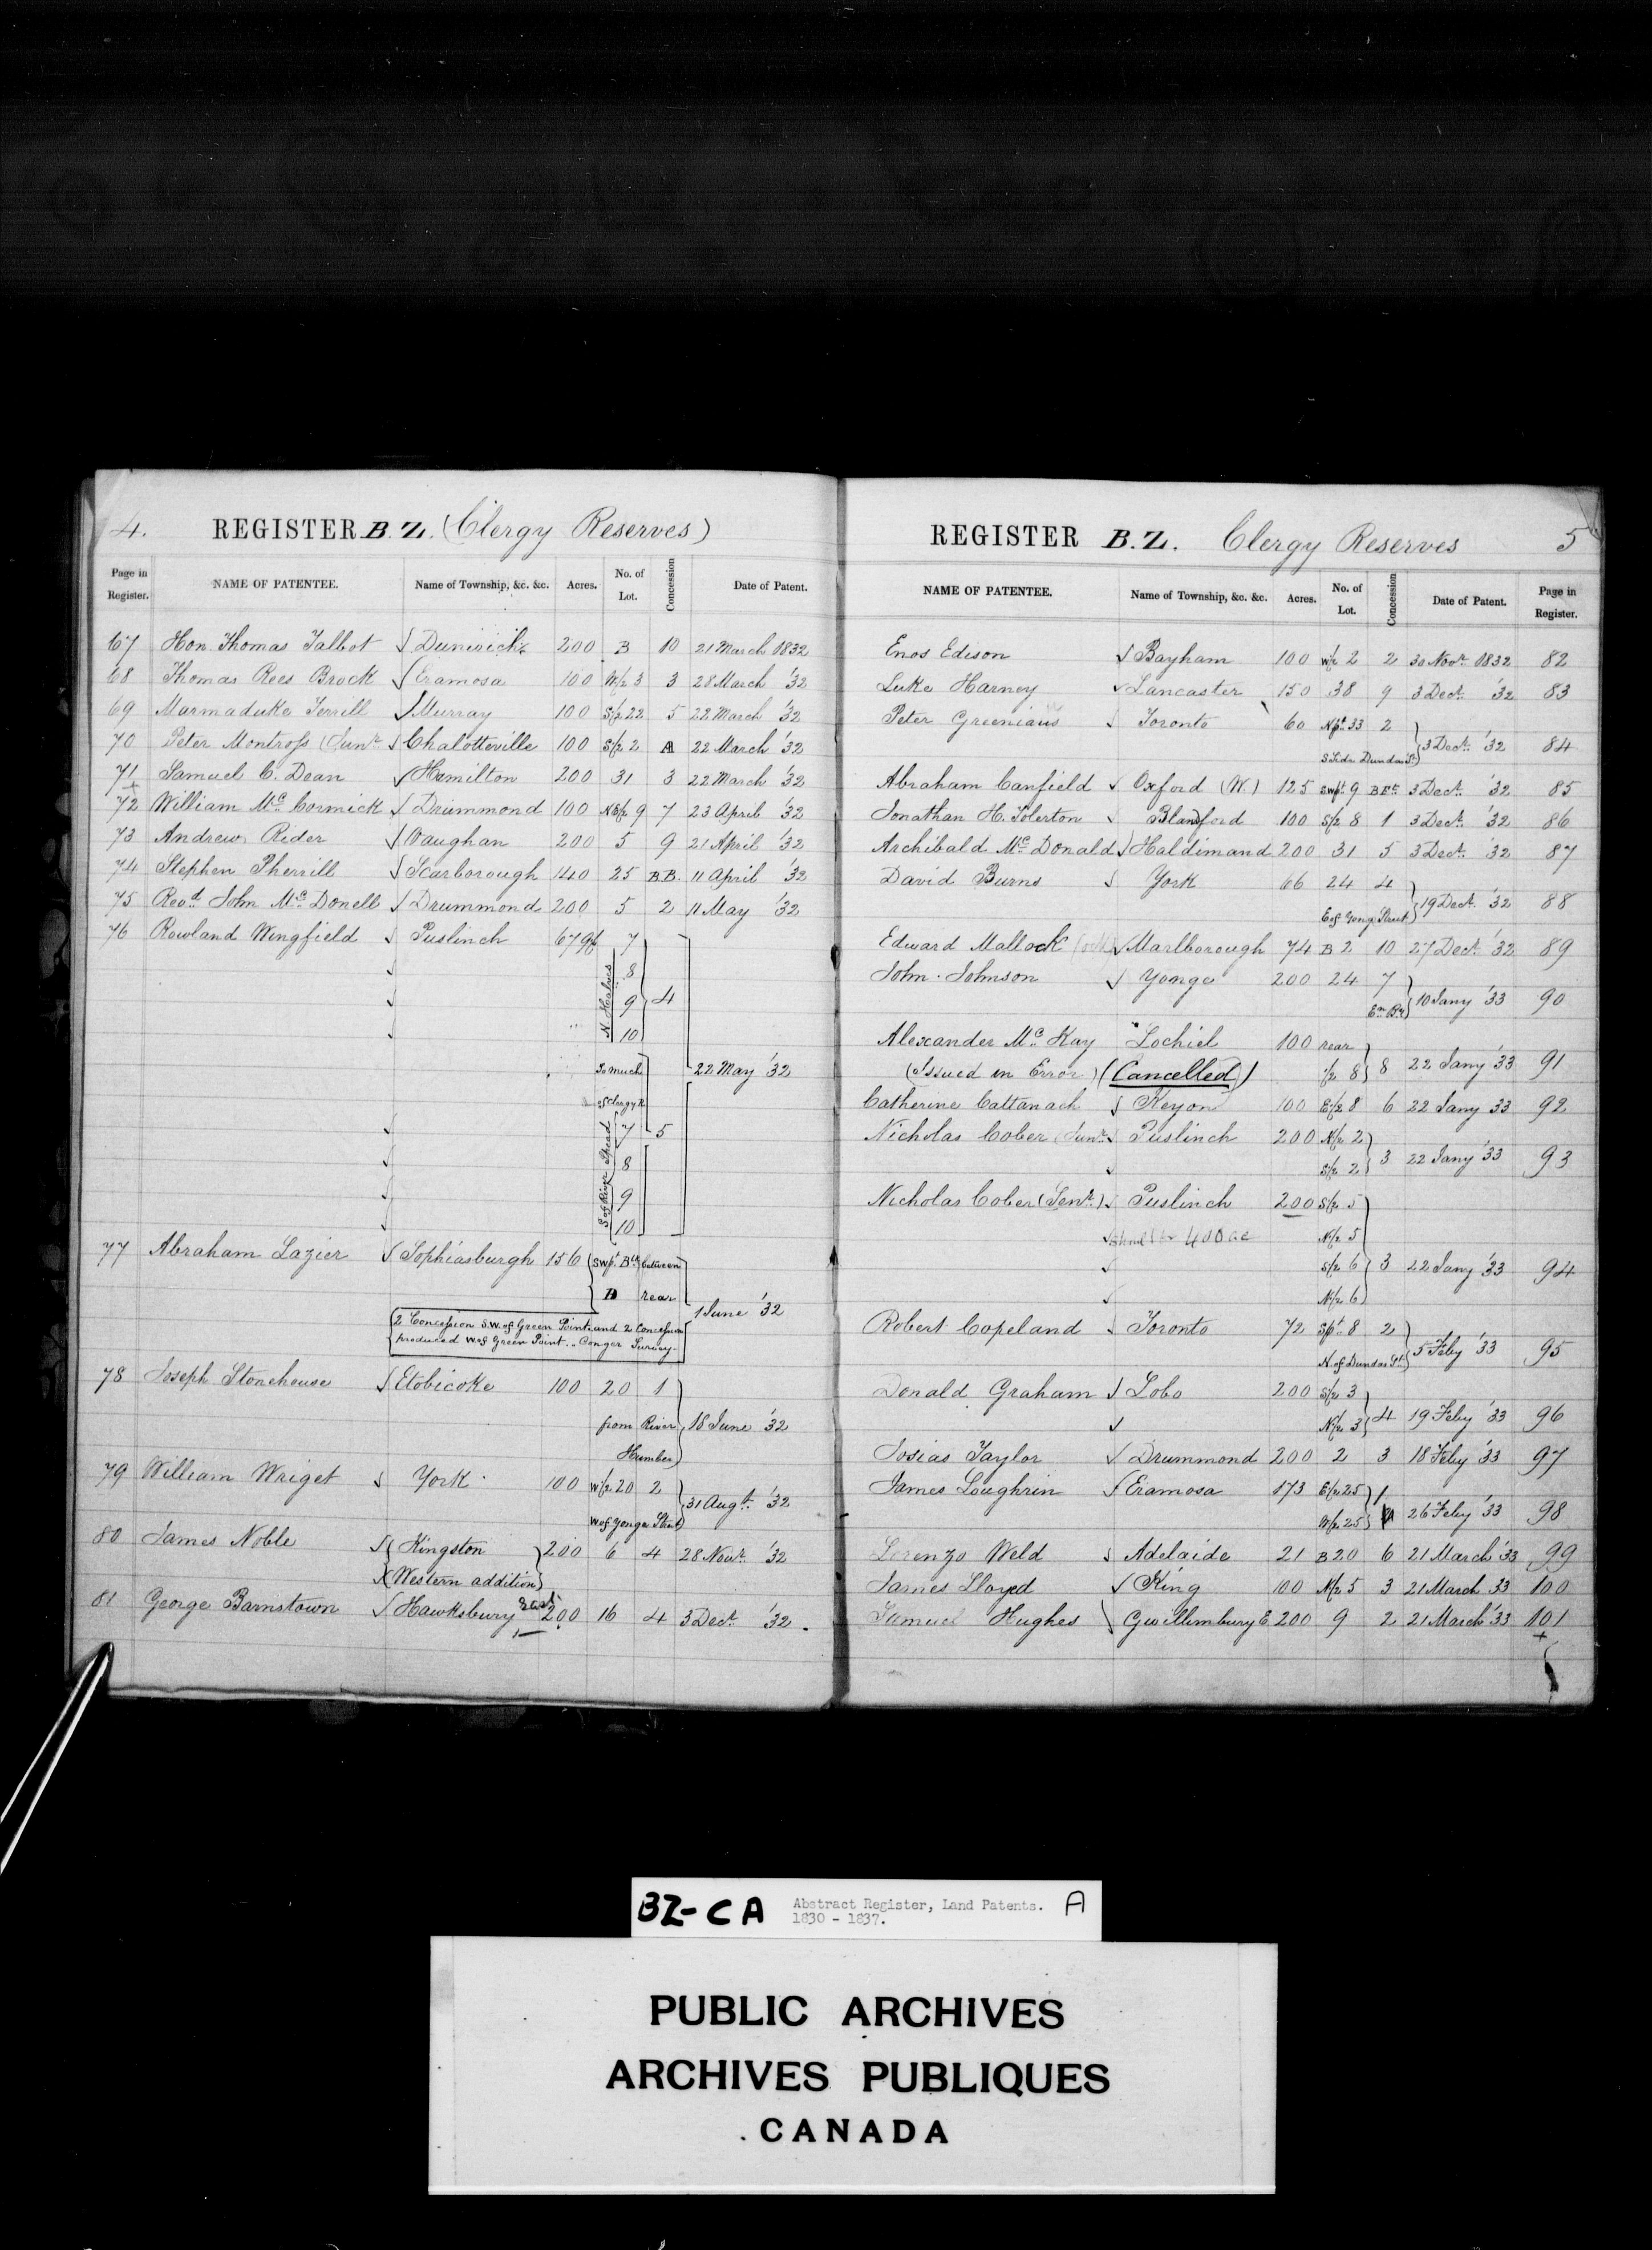 4. REGISTER B.Z. (Clergy Reserves)
Page in Register. NAME OF PATENTEE. Name of Township, &c. &c. Acres. No. of Lot. Concession Date of Patent.
67 Hon. Thomas Talbot √ Dunwich 200 B 10 21 March 1832
68 Thomas Rees Brock √ Eramosa 100 W/2 3 3 28 March '32
69 Marmaduke Terrill √ Murray 100 S/2 22 5 22 March '32
70 Peter Montross (Junr. √ Chalotteville 100 S/2 2 A 22 March '32
71 Samuel C. Dean √ Hamilton 200 31 3 22 March '32
72 William McCormick √ Drummond 100 NE/2 9 7 23 April '32
73 Andrew Rider √ Vaughan 200 5 9 21 April '32
74 Stephen Therrill √ Scarborough 140 25 B.B. 11 April '32
75 Revd. John McDonell √ Drummond 200 5 2 11 May '32
76 Rowland Wingfield √ Puslinch 679 7
√ 8
N. Halves √ 9 4
√ 10
So much 22 May '32
of Clergy R.
√ 7 5
S of River Speed √ 8
√ 9
√ 10
77 Abraham Lazier √ Sophiasburgh 156 SWpt. Blk between
D rear
1 June '32
2 Concession S.W. of Green Point and 2 Concession
produced W of Green Point. Conger Survey
78 Joseph Stonehouse √ Etobicoke 100 20 1
from River 18 June '32
Humber
79 William Wriget √ York 100 W/2 20 2
W of Yonge Street 31 Augt. '32
80 James Noble √ (Kingston 200 6 4 28 Novr. '32
X (Western addition)
81 George Barnstown √ Hawksbury East 200 16 4 3 Dect. '32.
REGISTER B.Z. Clergy Reserves 5
NAME OF PATENTEE. Name of Township, &c. &c. Acres. No. of Lot. Concession Date of Patent. Page in Register.
Enos Edison √ Bayham 100 W/2 2 2 30 Novr. 1832 82
Luke Harney √ Lancaster 150 38 9 3 Dect. '32 83
Peter Greeniaus √ Toronto 60 Npt. 33 2
S Side Dundas St. 3 Dect. '32 84
Abraham Canfield √ Oxford (W.) 125 SWpt. 9 B Ft. 3 Dect. '32 85
Jonathan H. Tolerton √ Blandford 100 S/2 8 1 3 Dect. '32 86
Archibald McDonald √ Haldimand 200 31 5 3 Dect. '32 87
David Burns √ York 66 24 4
E of Yonge Street 19 Dect. '32 88
Edward Mallock √ Marlborough 74 B 2 10 27 Dect. '32 89
John Johnson √ Yonge 200 24 7
10 Jany '33 90
Alexander McKay Lochiel 100 rear
(Issued in Error) (Cancelled) 1/2 8 8 22 Jany '33 91
Catherine Cattanach √ Kenyon 100 E/2 8 6 22 Jany '33 92
Nicholas Cober (Junr. √ Puslinch 200 N/2 2
√ S/2 2 3 22 Jany '33 93
Nicholas Cober (Senr.) √ Puslinch 200 S/2 5
√ should be 400 ac N/2 5
√ S/2 6 3 22 Jany '33 94
√ N/2 6
Robert Copeland √ Toronto 72 Spt 8 2
N. of Dundas St. 5 Feby '33 95
Donald Graham √ Lobo 200 S/2 3
√ N/2 3 4 19 Feby '33 96
Josias Taylor √ Drummond 200 2 3 18 Feby '33 97
James Loughrin √ Eramosa 173 E/2 25 1
W/2 25 26 Feby '33 98
Lorenzo Weld √ Adelaide 21 B 20 6 21 March '33 99
James Lloyd √ King 100 N/2 5 3 21 March '33 100
Samuel Hughes √ Gwillimbury E. 200 9 2 21 March '33 101
BZ-CA Abstract Register, Land Patents. A
1830 - 1837.
PUBLIC ARCHIVES
ARCHIVES PUBLIQUES
CANADA